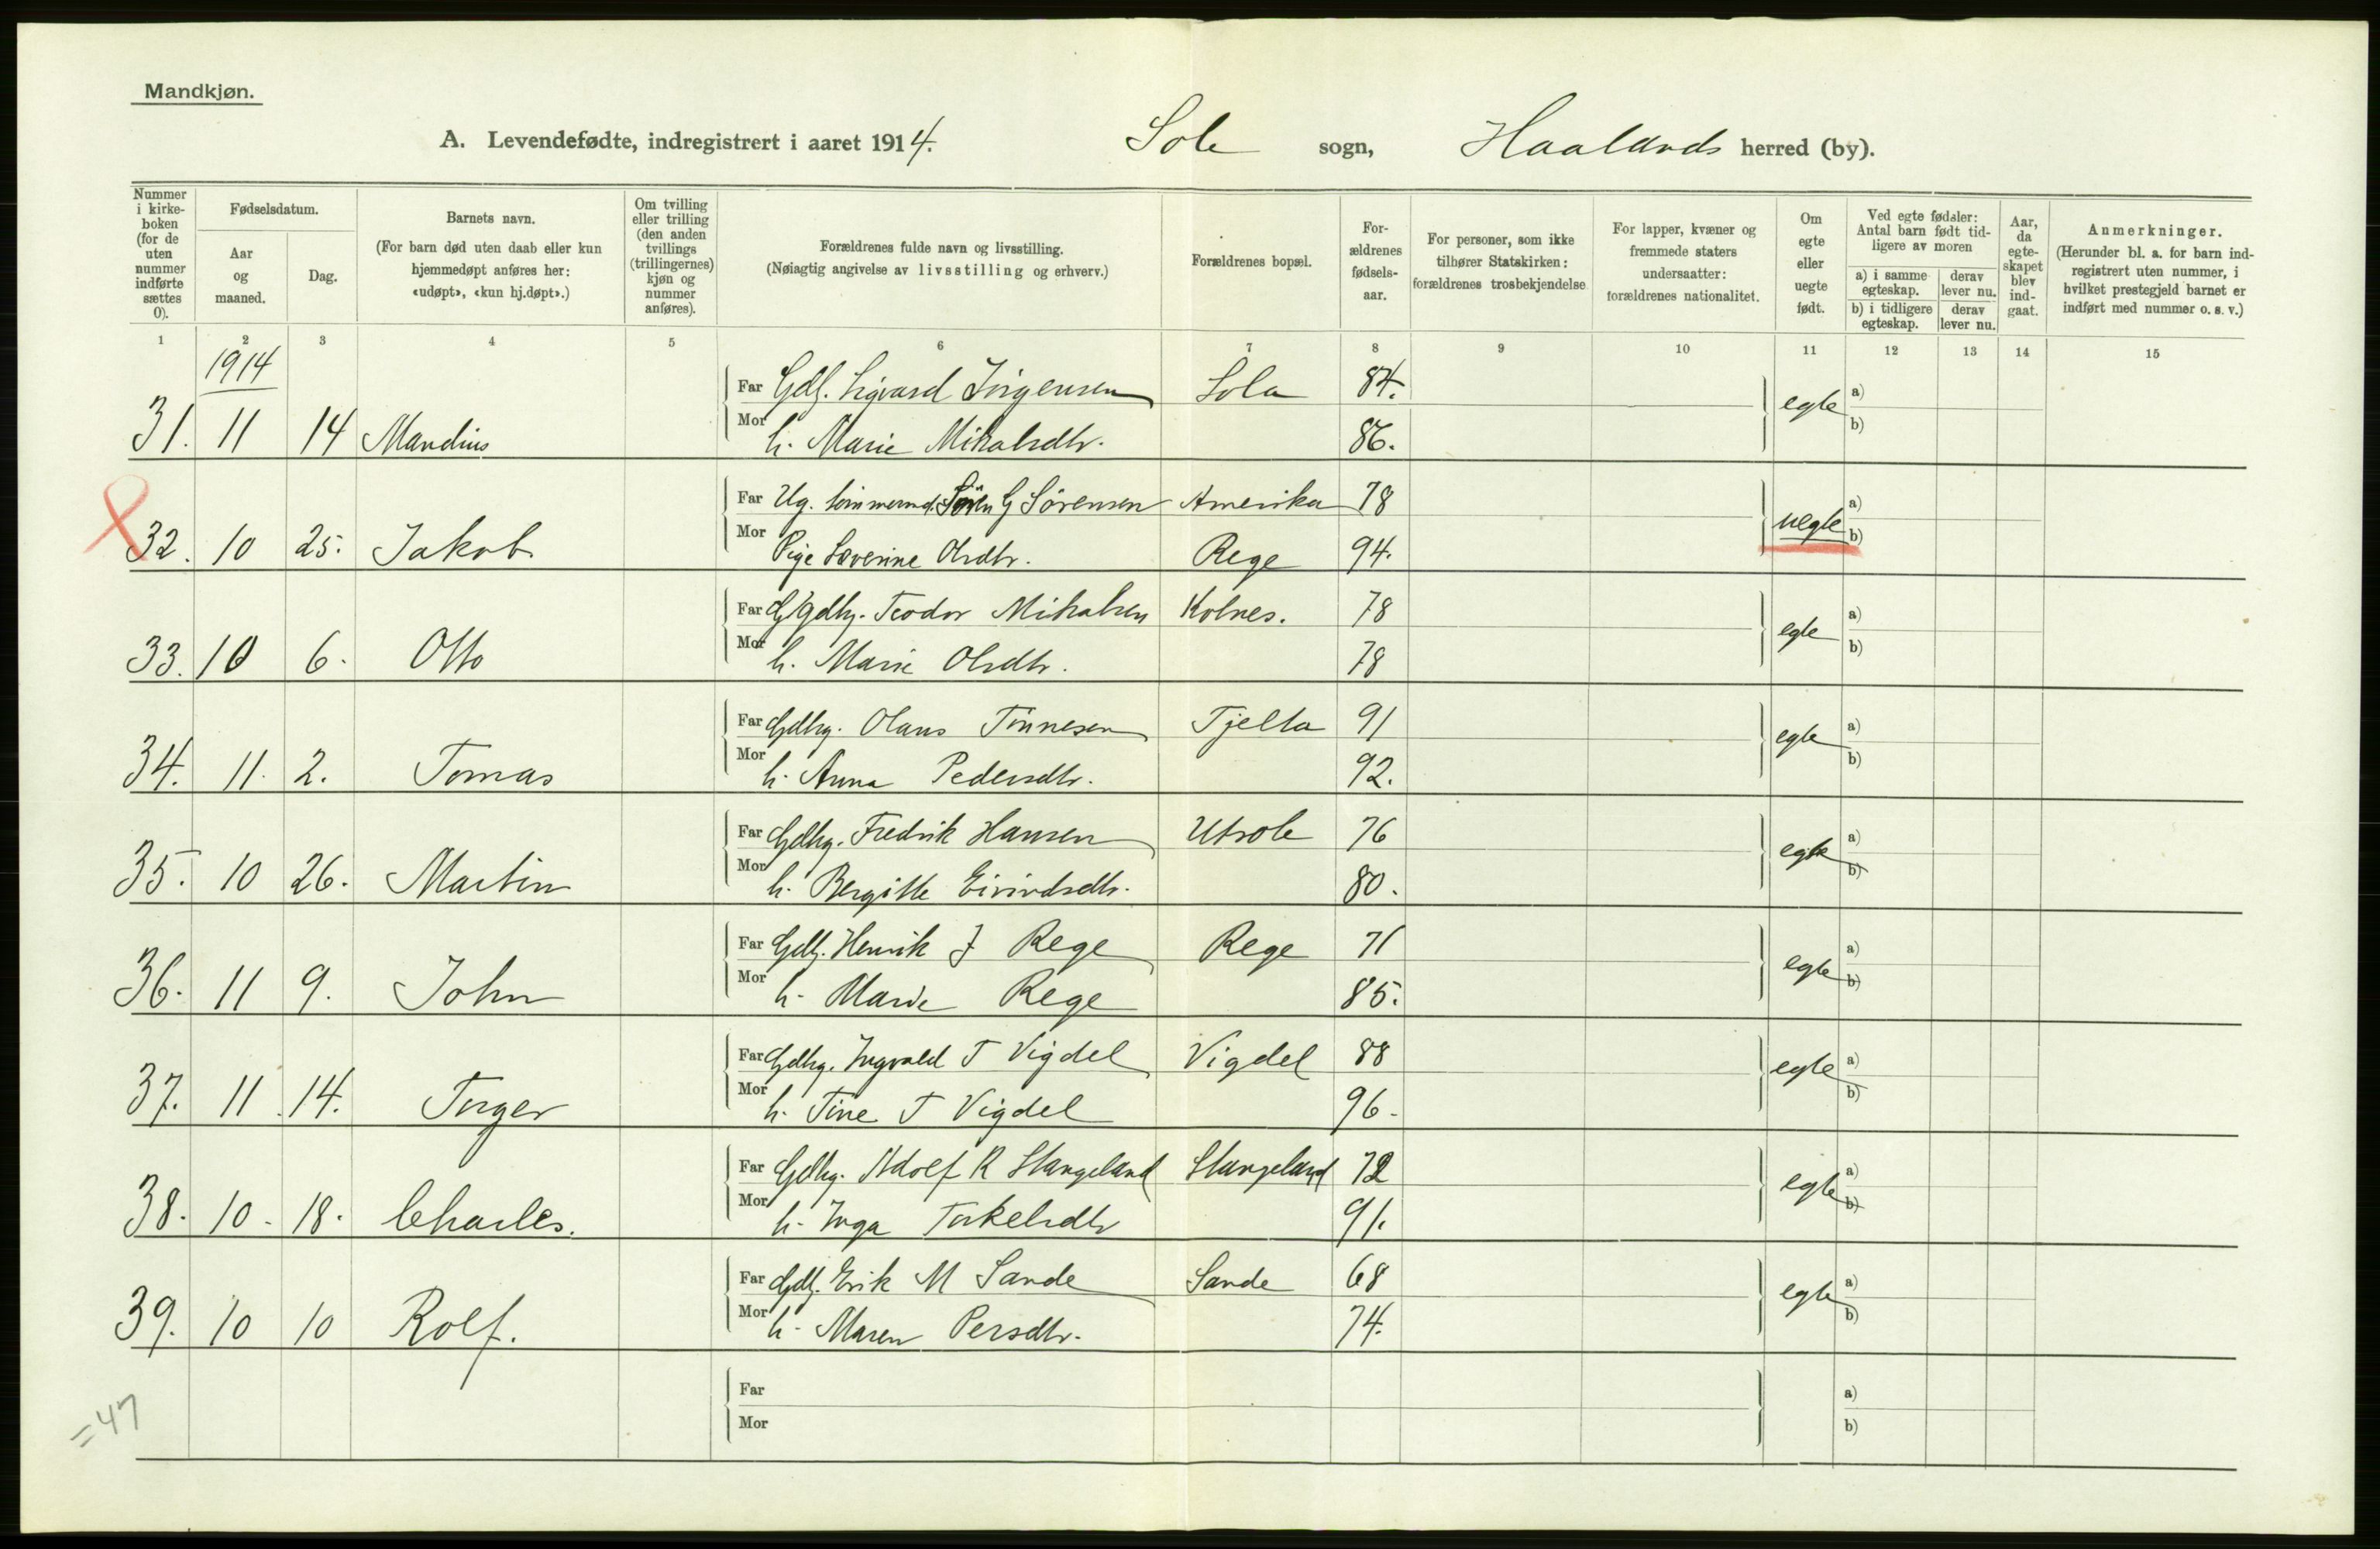 Mandkjøn.
A. Levendefødte, indregistrert i aaret 1914. Sole sogn, Haalands herred (by).
Nummer i kirke- boken (for de uten nummer indførte sættes 0).
Fødselsdatum.
Aar og maaned.
Dag.
Barnets navn.
(For barn død uten daab eller kun hjemmedøpt anføres her: «udøpt», «kun hj.døpt».)
Om tvilling eller trilling (den anden tvillings (trillingernes) kjøn og nummer anføres).
Forældrenes fulde navn og livsstilling.
(Nøiagtig angivelse av livsstilling og erhverv.)
Forældrenes bopæl.
For- ældrenes fødsels- aar.
For personer, som ikke tilhører Statskirken: forældrenes trosbekjendelse
For lapper, kvæner og fremmede staters undersaatter: forældrenes nationalitet.
Om egte eller uegte født.
Ved egte fødsler: Antal barn født tid- ligere av moren
a) i samme egteskap. derav lever nu.
b) i tidligere egteskap. derav lever nu.
Aar, da egte- skapet blev ind- gaat.
Anmerkninger.
(Herunder bl. a. for barn ind- registrert uten nummer, i hvilket prestegjeld barnet er indført med nummer o. s. v.)
1 2 3 4 5 6 7 8 9 10 11 12 13 14 15
1914
Far Gdb. Sigvard Jörgensen Sola 84.
31. 11 14 Mandius Mor h. Marie Mikalsdtr. 86. egte a) b)
Far Ug. tömmermd. Sören G Sörensen Amerika 78
32. 10 25. Jakob Mor Pige Severine Olsdtr. Rege 94. uegte a) b)
Far G/gdbr. Teodor Mikalsen Kolnes. 78
33. 10 6. Otto Mor h. Marie Olsdtr. 78 egte a) b)
Far Gdbr. Olaus Tönnesen Tjelta 91
34. 11. 2. Tomas Mor h. Anna Pedersdtr. 92. egte a) b)
Far Gdbr. Fredrik Hansen Utsole 76
35. 10 26. Martin Mor h. Bergitte Eivindsdtr. 80. egte a) b)
Far Gdb. Henrik J Rege Rege 71
36. 11 9. John Mor h. Marie Rege 85. egte a) b)
Far Gdbr. Ingvald T Vigdel Vigdel 88
37. 11. 14. Torger Mor h. Tine T Vigdel 96. egte a) b)
Far Gdbr. Adolf R Stangeland Stangeland 72
38. 10. 18. Charles. Mor h. Inga Torkelsdtr 91. egte a) b)
Far Gdb. Erik M Sande Sande 68
39. 10 10 Rolf. Mor h. Maren Persdtr. 74. egte a) b)
Far a)
Mor b)
= 47